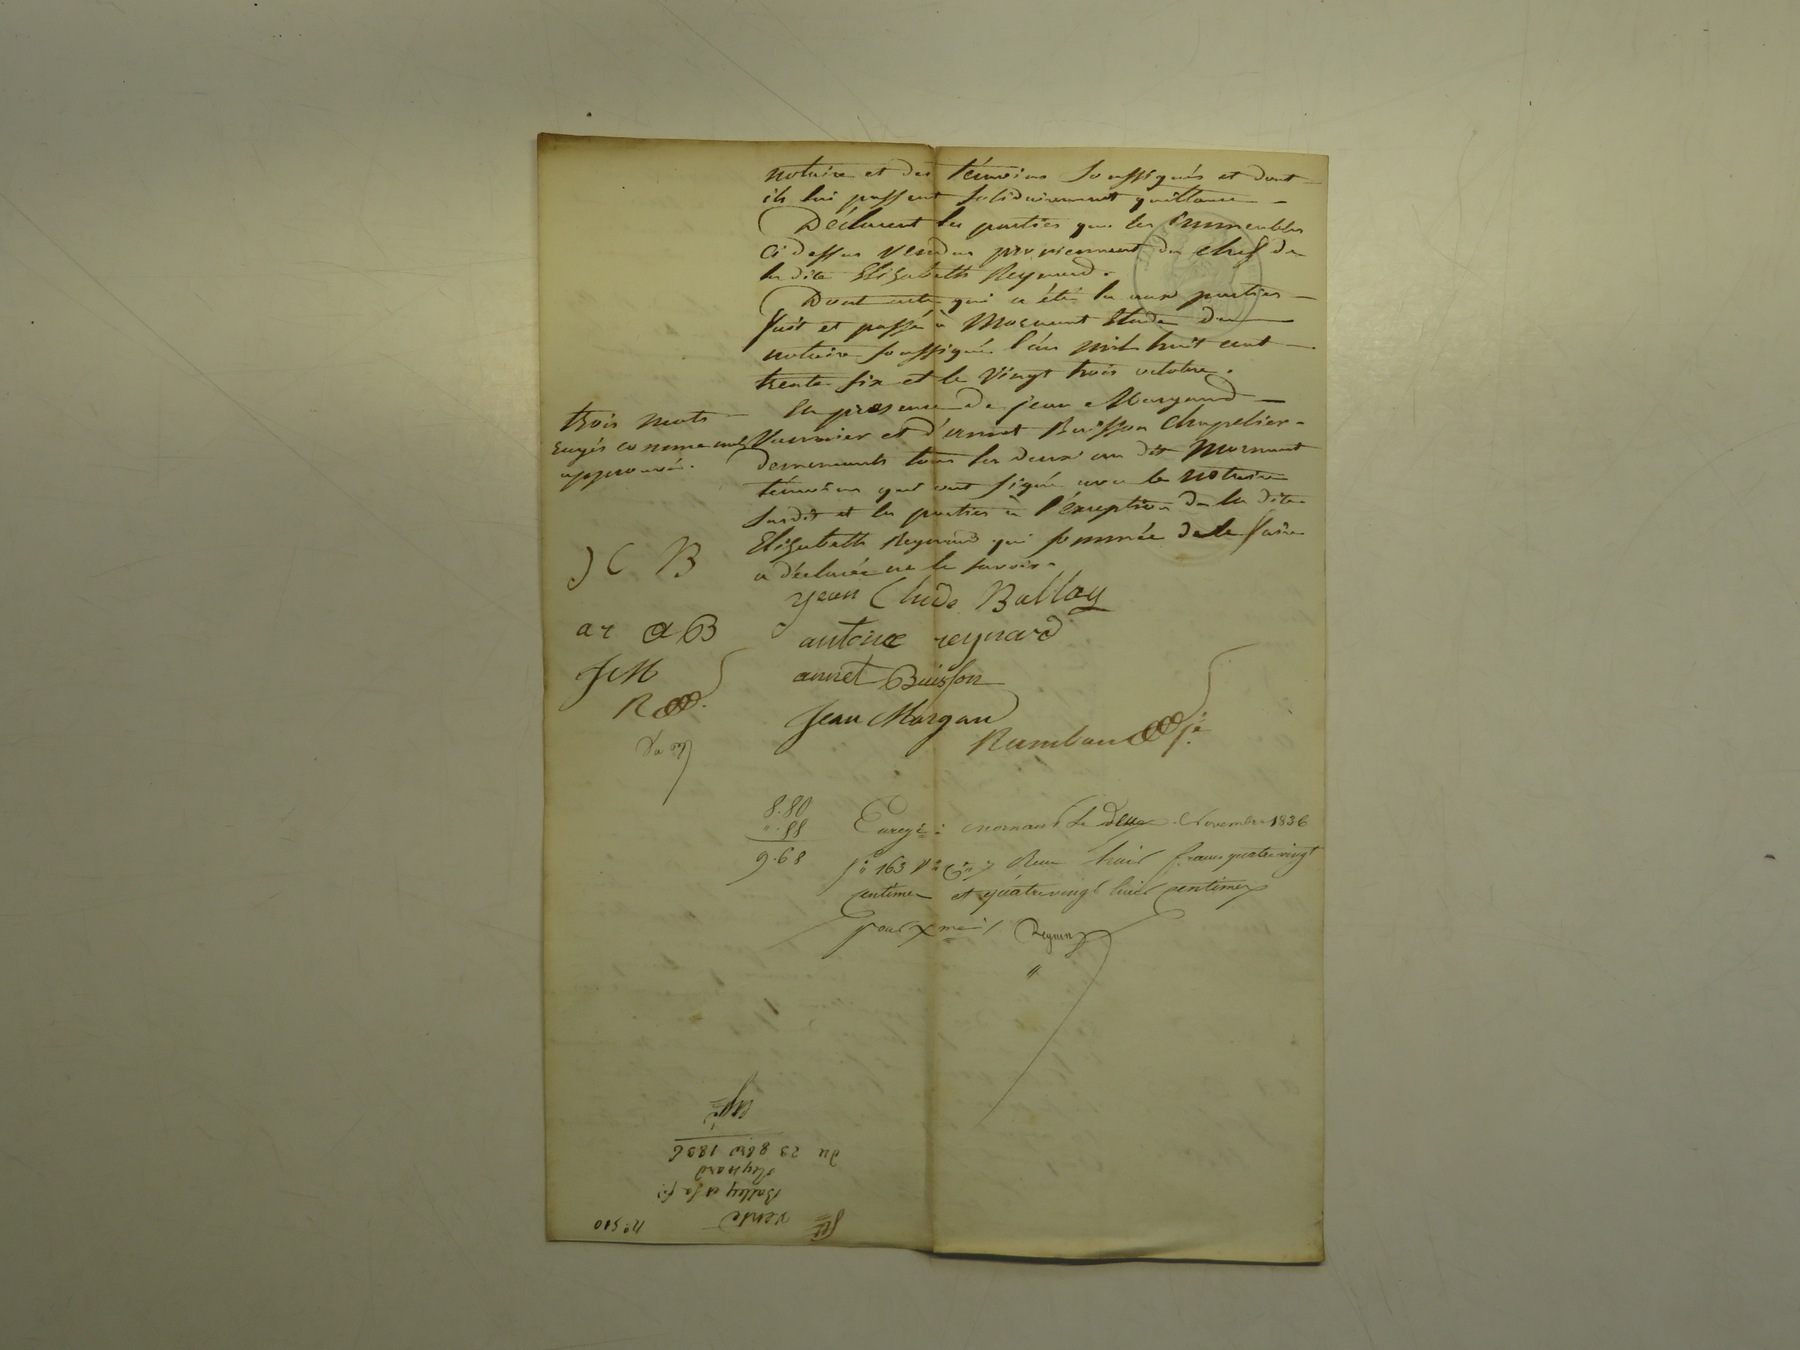 notaire et des témoins soussignés et dont
ils lui passent solidairement quittance
Déclarent les parties que les immeubles
ci dessus vendus proviennent du chef de
la dite Elisabeth Reynard.
Dont acte qui a été lu aux parties
fait et passé à Mornant Etude du
notaire soussigné l'an mil huit cent
trente six et le vingt trois octobre.
En présence de jean Margand
et d'annet Buisson chapelier
demeurants tous les deux au dit Mornant
témoins qui ont signé avec le notaire
susdit et les parties à l'exeption de la dite
Elisabeth Reynard qui sommée de le faire
a déclarée ne le savoir.
trois mots
rayés comme nuls
approuvés.
J C B
ar aB
JM
R
jean Clude Ballay
antoine reynard
annet Buisson
Jean Margand
Rambau
8.80
".88
9.68
Enregé à mornant le deux Novembre 1836
fo 163 Vo Reçu huit francs quatre vingt
centimes et quatre vingt huit centimes
pour
n° 510
vente
Balley et sa fe
Reynard
du 23 8bre 1836